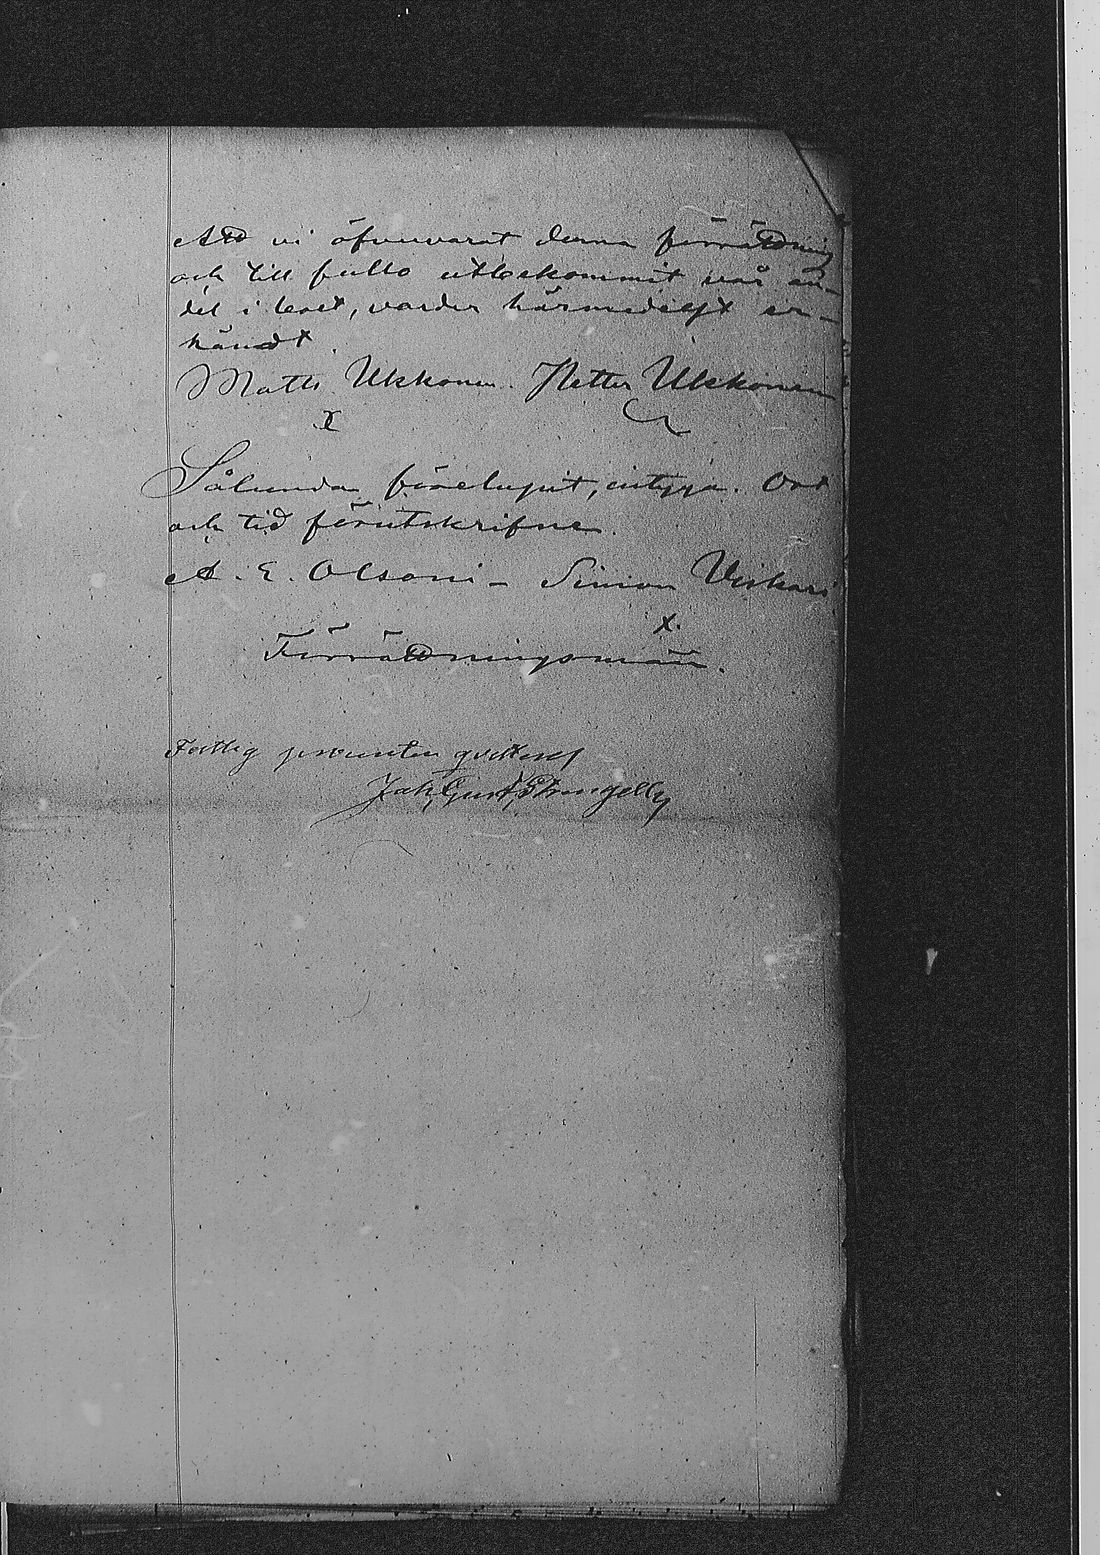 Att vi öfvervarat denna förrättning
och till fullo utbekommit vår an-
del i boet, varder härmedelst er-
kändt.
Matts Ukkonen. Petter Ukkonen
x
Sålunda förelupit, intyga. Ort
och tid förutskrifne.
A. E. Olsoni - Simon Virkari
x.
Förrättningsmän.
Fattig procenten qvitteras
Jak. Gust.